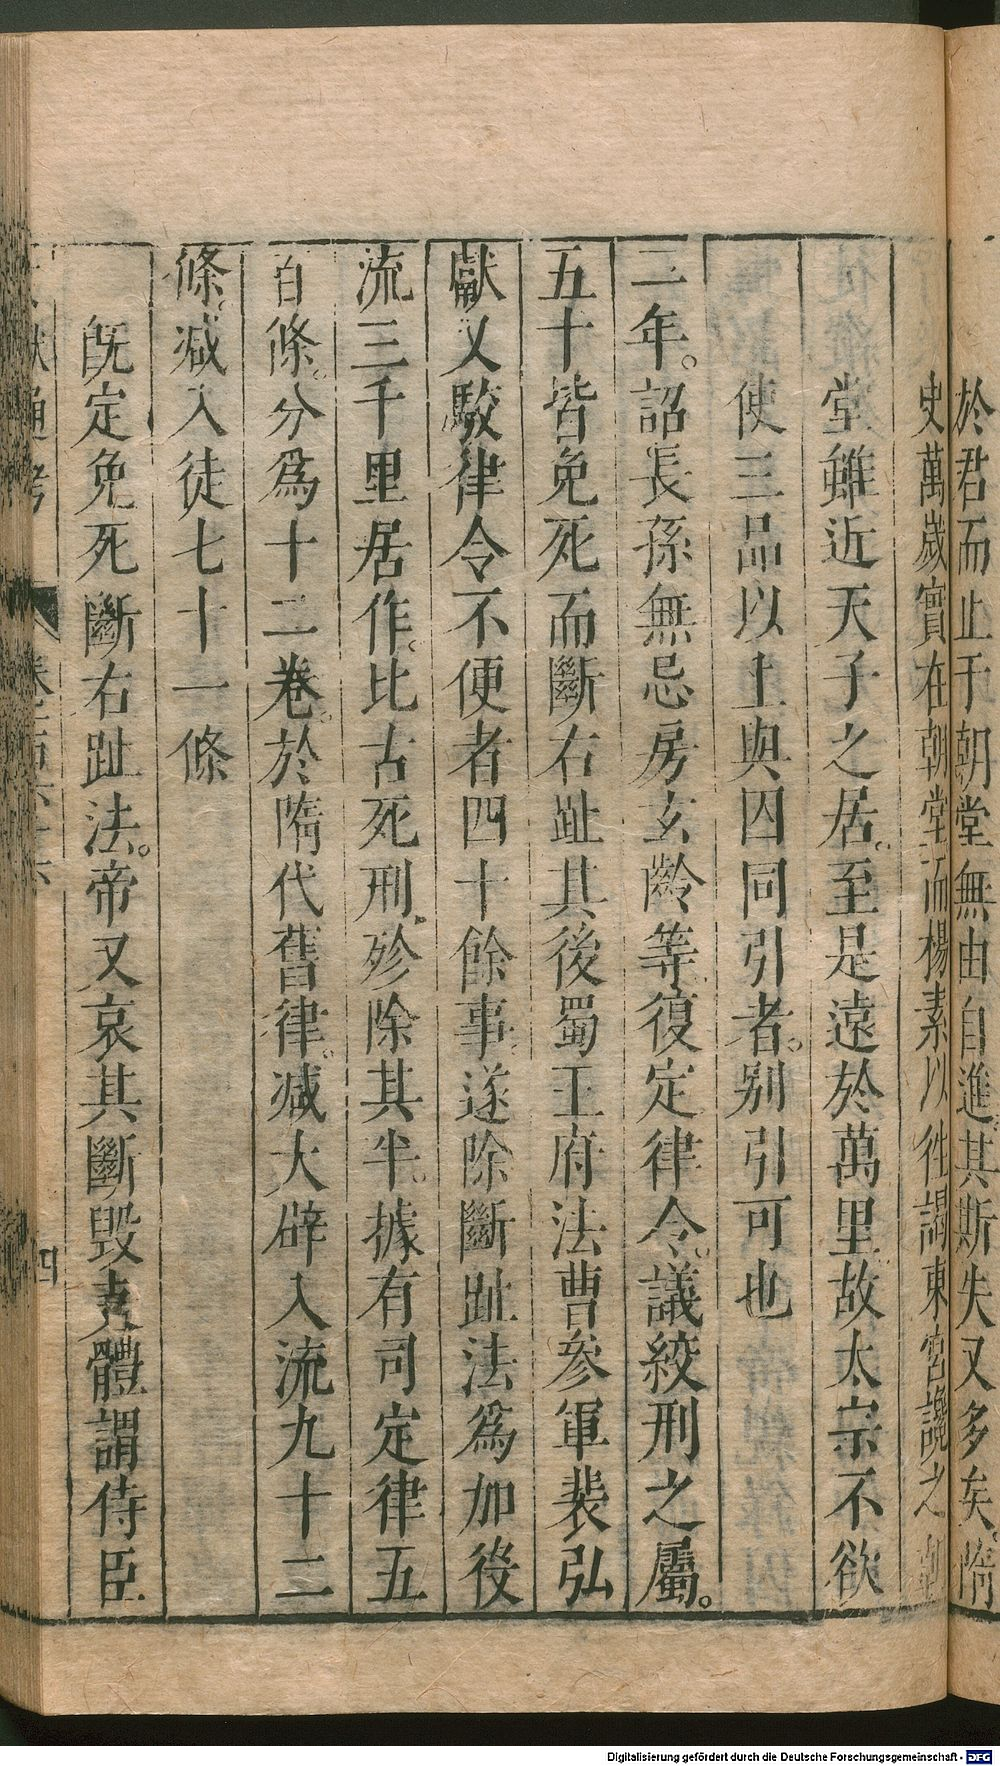 於君而止于朝堂無由自進其斯失又多矣隋
史萬歲實在朝堂而楊素以徃謁東宮讒之
堂雖近天子之居。至是遠於萬里故太宗不欲
使三品以上與囚同引者。別引可也
二年。詔長孫無忌房玄齡等復定律令。議絞刑之屬。
五十皆免死而斷右趾其後蜀王府法曹參軍裴弘
獻又駮律令不便者四十餘事。遂除斷趾法為加役
流三千里居作。比古死刑。殄除其半。據有司定律五
百條。分爲十二卷。於隋代舊律。減大辟入流九十二
條。減入徒七十一條
既定免死斷右趾法。帝又哀其斷毀支體謂侍臣
通考
四
Digitalisierung gefördert durch die Deutsche Forschungsgemeinschaft - DFG